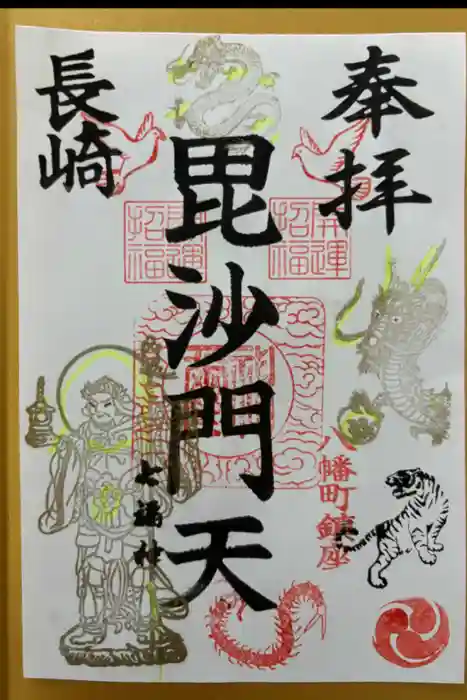 奉拝
開運
招福
八幡町鎮座
毘沙門天
開運
招福
長崎